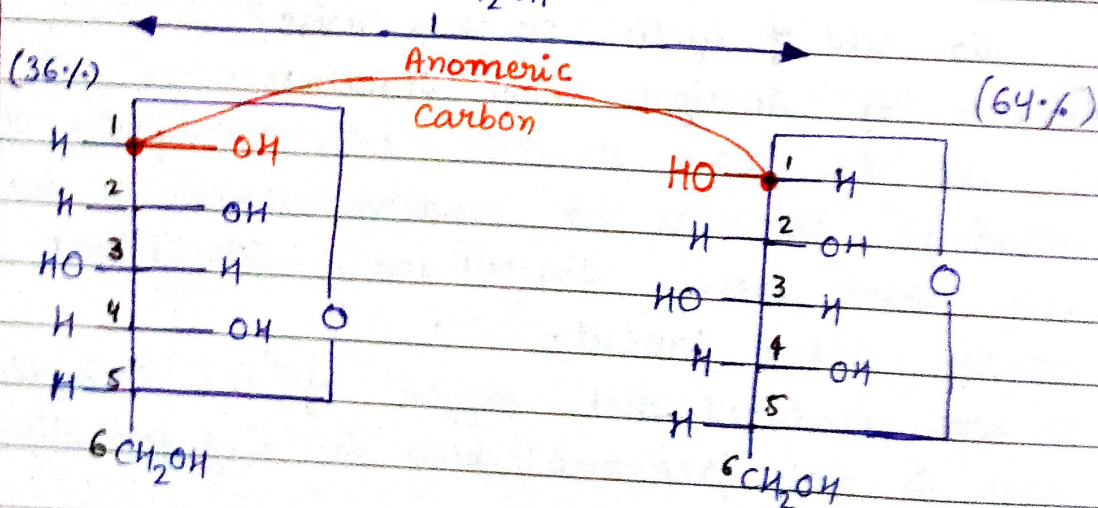 (36%)
Anomeric
Carbon
(64%)
H 1 OH
H 2 OH
HO 3 H
H 4 OH
O
H 5
6 CH2OH
HO 1 H
H 2 OH
O
HO 3 H
H 4 OH
H 5
6 CH2OH